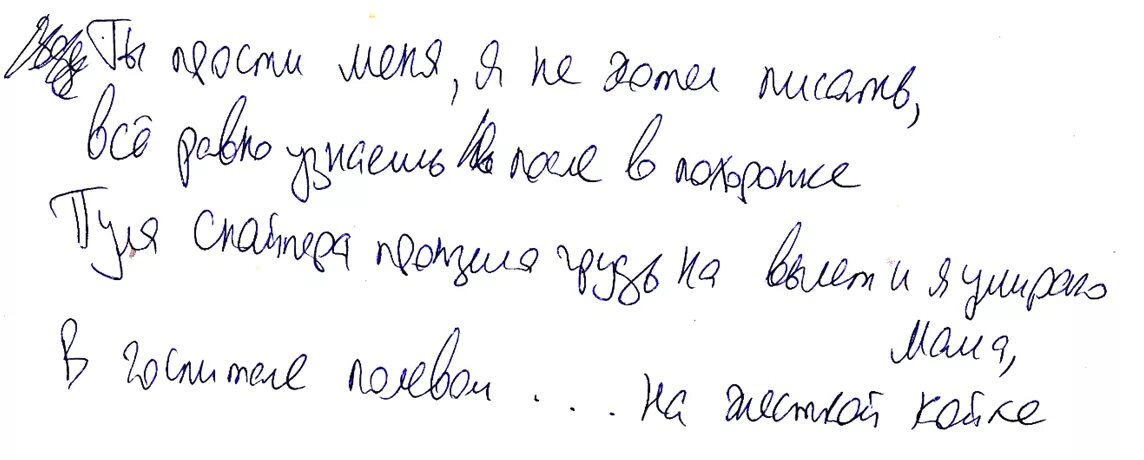 Ты прости меня, я не хотел писать,
всё равно узнаешь после в похоронке
Пуля снайпера пронзила грудь на вылет и я умираю
Мама,
В госпитале полевом .... на жесткой койке